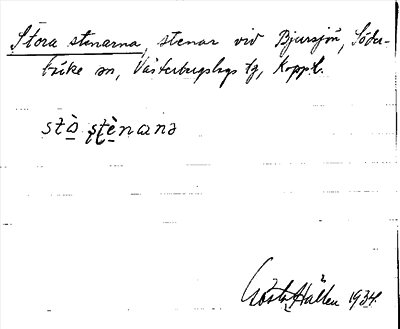 Stora stenarna, stenar vid Bjursjön, Söder-
bärke sn, Västerbergslags tg, Koppb.
stò̱ ʂtè̱nanə
Gösta Hallén 1934.